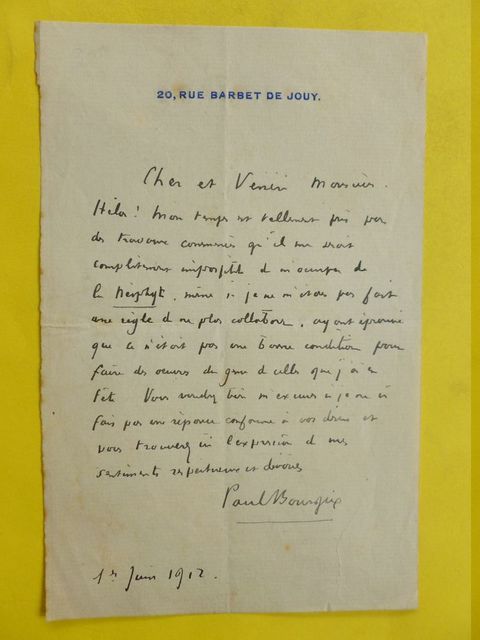 20, RUE BARBET DE JOUY.
Cher et Vénéré Monsieur.
Hélas! Mon temps est tellement pris par
des travaux commencés qu'il me serait
complètement impossible de m'occuper de
la Néophyte, même si je ne m'étais pas fait
une règle de ne plus collaborer, ayant éprouvé
que ce n'était pas une bonne condition pour
faire des oeuvres du genre de celles que j'ai en
tête. Vous voudrez bien m'excuser si je ne
fais pas une réponse conforme à vos désirs et
vous trouverez ici l'expression de mes
sentiments respectueux et dévoués
Paul Bourget
1er Juin 1912.